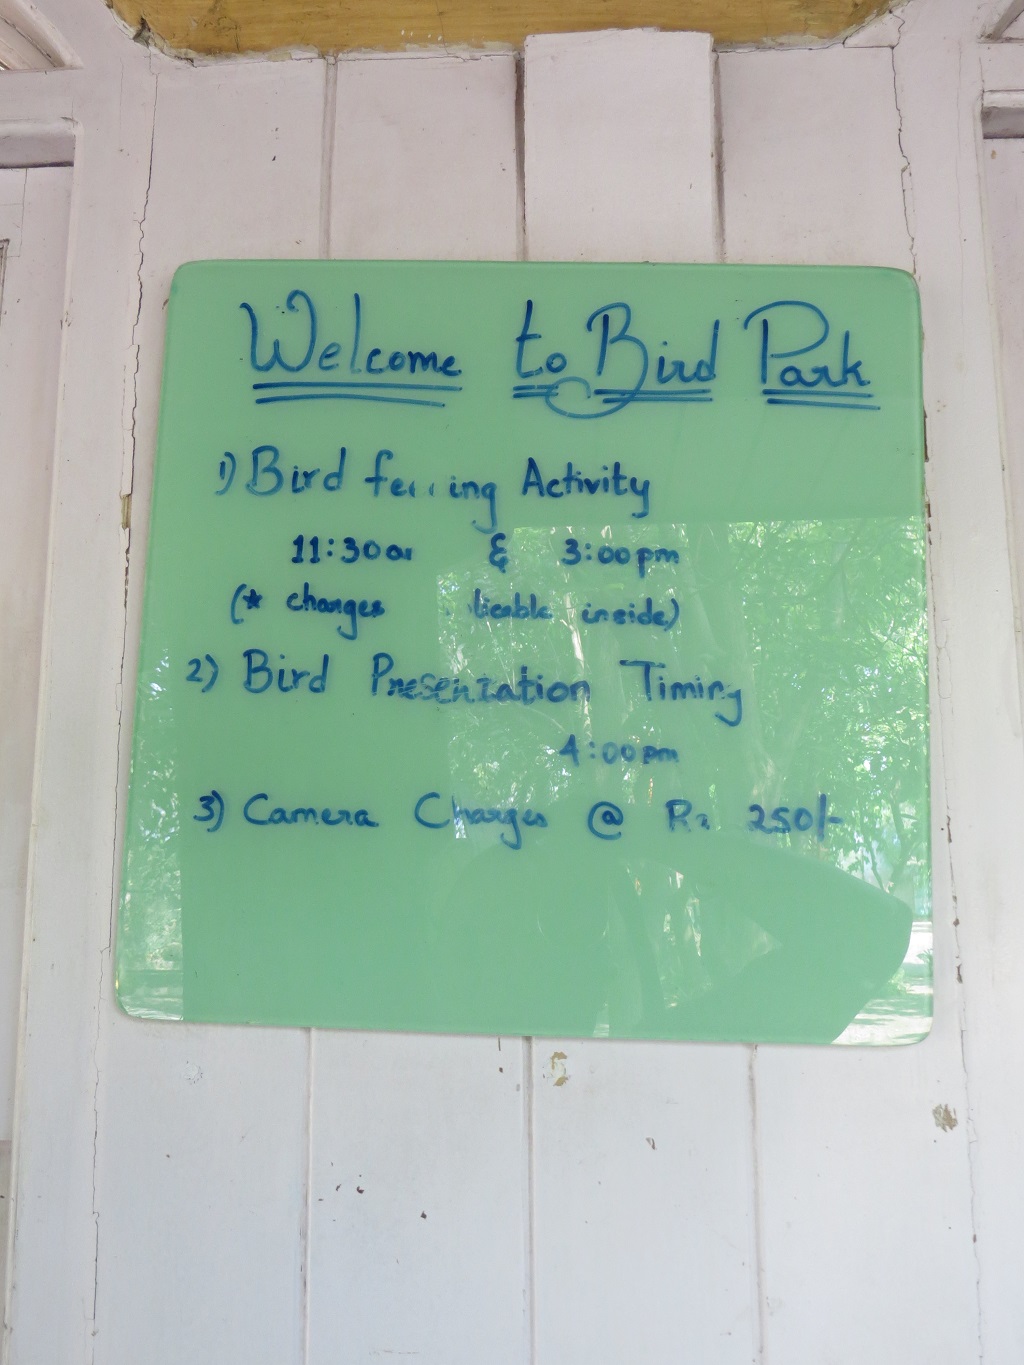 Welcome to Bird Park
1) Bird Activity
11:30a & 3:00pm
(* charges inside)
2) Bird Presentation Timing
4:00pm
3) Camera Charges @ Rs 250/-